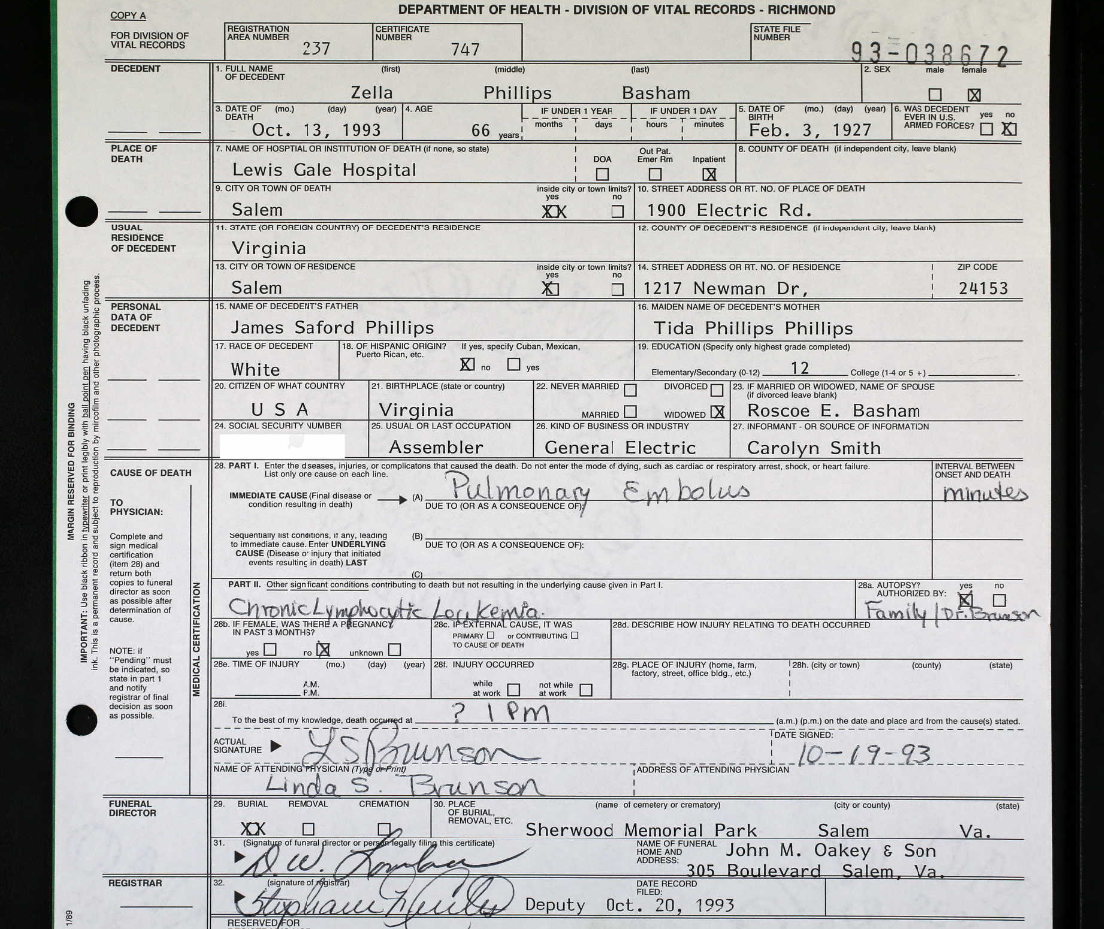 COPY A
DEPARTMENT OF HEALTH - DIVISION OF VITAL RECORDS - RICHMOND
FOR DIVISION OF VITAL RECORDS
REGISTRATION AREA NUMBER 237
CERTIFICATE NUMBER 747
STATE FILE NUMBER 93-038672
DECEDENT
1. FULL NAME OF DECEDENT (first) (middle) (last)
Zella Phillips Basham
2. SEX male female ☒
3. DATE OF DEATH (mo.) (day) (year)
Oct. 13, 1993
4. AGE 66 years
IF UNDER 1 YEAR months days
IF UNDER 1 DAY hours minutes
5. DATE OF BIRTH (mo.) (day) (year)
Feb. 3, 1927
6. WAS DECEDENT EVER IN U.S. ARMED FORCES? yes no X
PLACE OF DEATH
7. NAME OF HOSPTIAL OR INSTITUTION OF DEATH (if none, so state)
Lewis Gale Hospital
DOA Out Pat. Emer Rm Inpatient X
8. COUNTY OF DEATH (if independent city, leave blank)
9. CITY OR TOWN OF DEATH
Salem
inside city or town limits? yes XX no
10. STREET ADDRESS OR RT. NO. OF PLACE OF DEATH
1900 Electric Rd.
USUAL RESIDENCE OF DECEDENT
11. STATE (OR FOREIGN COUNTRY) OF DECEDENT'S RESIDENCE
Virginia
12. COUNTY OF DECEDENT'S RESIDENCE (if independent city, leave blank)
13. CITY OR TOWN OF RESIDENCE
Salem
inside city or town limits? yes X no
14. STREET ADDRESS OR RT. NO. OF RESIDENCE
1217 Newman Dr,
ZIP CODE
24153
PERSONAL DATA OF DECEDENT
15. NAME OF DECEDENT'S FATHER
James Saford Phillips
16. MAIDEN NAME OF DECEDENT'S MOTHER
Tida Phillips Phillips
17. RACE OF DECEDENT
White
18. OF HISPANIC ORIGIN? If yes, specify Cuban, Mexican, Puerto Rican, etc.
X no yes
19. EDUCATION (Specify only highest grade completed)
Elementary/Secondary (0-12) 12 College (1-4 or 5 +)
20. CITIZEN OF WHAT COUNTRY
U S A
21. BIRTHPLACE (state or country)
Virginia
22. NEVER MARRIED DIVORCED
MARRIED WIDOWED X
23. IF MARRIED OR WIDOWED, NAME OF SPOUSE (if divorced leave blank)
Roscoe E. Basham
24. SOCIAL SECURITY NUMBER
25. USUAL OR LAST OCCUPATION
Assembler
26. KIND OF BUSINESS OR INDUSTRY
General Electric
27. INFORMANT - OR SOURCE OF INFORMATION
Carolyn Smith
CAUSE OF DEATH
TO PHYSICIAN:
Complete and sign medical certification (item 28) and return both copies to funeral director as soon as possible after determination of cause.
NOTE: if "Pending" must be indicated, so state in part 1 and notify registrar of final decision as soon as possible.
MARGIN RESERVED FOR BINDING
IMPORTANT: Use black ribbon in typewriter or print legibly with ball point pen having black unfading ink. This is a permanent record and subject to reproduction by mircofilm and other photographic process.
MEDICAL CERTIFICATION
28. PART I. Enter the diseases, injuries, or complicatons that caused the death. Do not enter the mode of dying, such as cardiac or respiratory arrest, shock, or heart failure.
List only ore cause on each line.
INTERVAL BETWEEN ONSET AND DEATH
IMMEDIATE CAUSE (Final disease or condition resulting in death)
(A) Pulmonary Embolus minutes
DUE TO (OR AS A CONSEQUENCE OF):
Sequentially list conditions, if any, leading to immediate cause. Enter UNDERLYING CAUSE (Disease or injury that initiated events resulting in death) LAST
(B)
DUE TO (OR AS A CONSEQUENCE OF):
(C)
PART II. Other significant conditions contributing to death but not resulting in the underlying cause given in Part I.
Chronic Lymphocytic Leukemia.
28a. AUTOPSY? yes X no
AUTHORIZED BY:
Family / Dr. Brunson
28b. IF FEMALE, WAS THERE A PREGNANCY IN PAST 3 MONTHS?
yes no X unknown
28c. IF EXTERNAL CAUSE, IT WAS
PRIMARY or CONTRIBUTING
TO CAUSE OF DEATH
28d. DESCRIBE HOW INJURY RELATING TO DEATH OCCURRED
28e. TIME OF INJURY (mo.) (day) (year)
A.M.
P.M.
28f. INJURY OCCURRED
while at work not while at work
28g. PLACE OF INJURY (home, farm, factory, street, office bldg., etc.)
28h. (city or town) (county) (state)
28i.
To the best of my knowledge, death occurred at ? 1 Pm (a.m.) (p.m.) on the date and place and from the cause(s) stated.
ACTUAL SIGNATURE LS Brunson
DATE SIGNED:
10-19-93
NAME OF ATTENDING PHYSICIAN (Type or Print)
Linda S. Brunson
ADDRESS OF ATTENDING PHYSICIAN
FUNERAL DIRECTOR
29. BURIAL REMOVAL CREMATION
XX
30. PLACE OF BURIAL, REMOVAL, ETC. (name of cemetery or crematory) (city or county) (state)
Sherwood Memorial Park Salem Va.
31. (Signature of funeral director or person legally filing this certificate)
D.W.
NAME OF FUNERAL HOME AND ADDRESS:
John M. Oakey & Son
305 Boulevard Salem, Va.
REGISTRAR
32. (signature of registrar)
Deputy
DATE RECORD FILED:
Oct. 20, 1993
RESERVED FOR
1/89